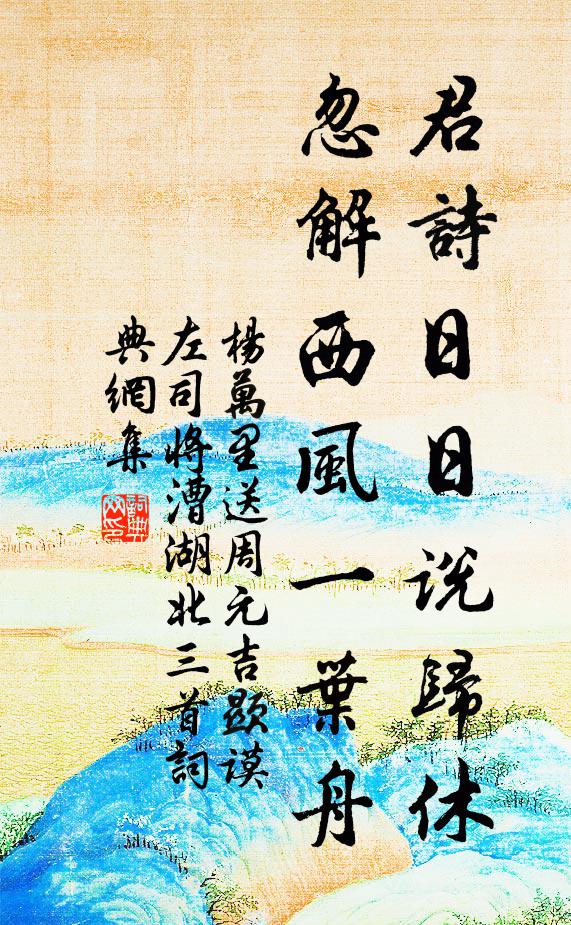 君詩日日說歸休
忽解西風一葉舟
楊萬里送周元吉顯謨
左司將漕湖北三首詞
典網集